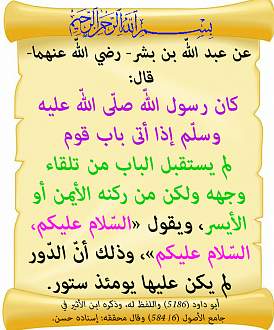 بسم الله الرحمن الرحيم
عن عبد الله بن بشر- رضي الله عنهما-
قال:
كان رسول الله صلّى الله عليه
وسلّم إذا أتى باب قوم
لم يستقبل الباب من تلقاء
وجهه ولكن من ركنه الأيمن أو
الأيسر، ويقول «السّلام عليكم،
السّلام عليكم»، وذلك أنّ الدّور
لم يكن عليها يومئذ ستور.
أبو داود (5186) واللفظ له، وذكره ابن الأثير في
جامع الأصول (6/ 584) وقال محققه: إسناده حسن.